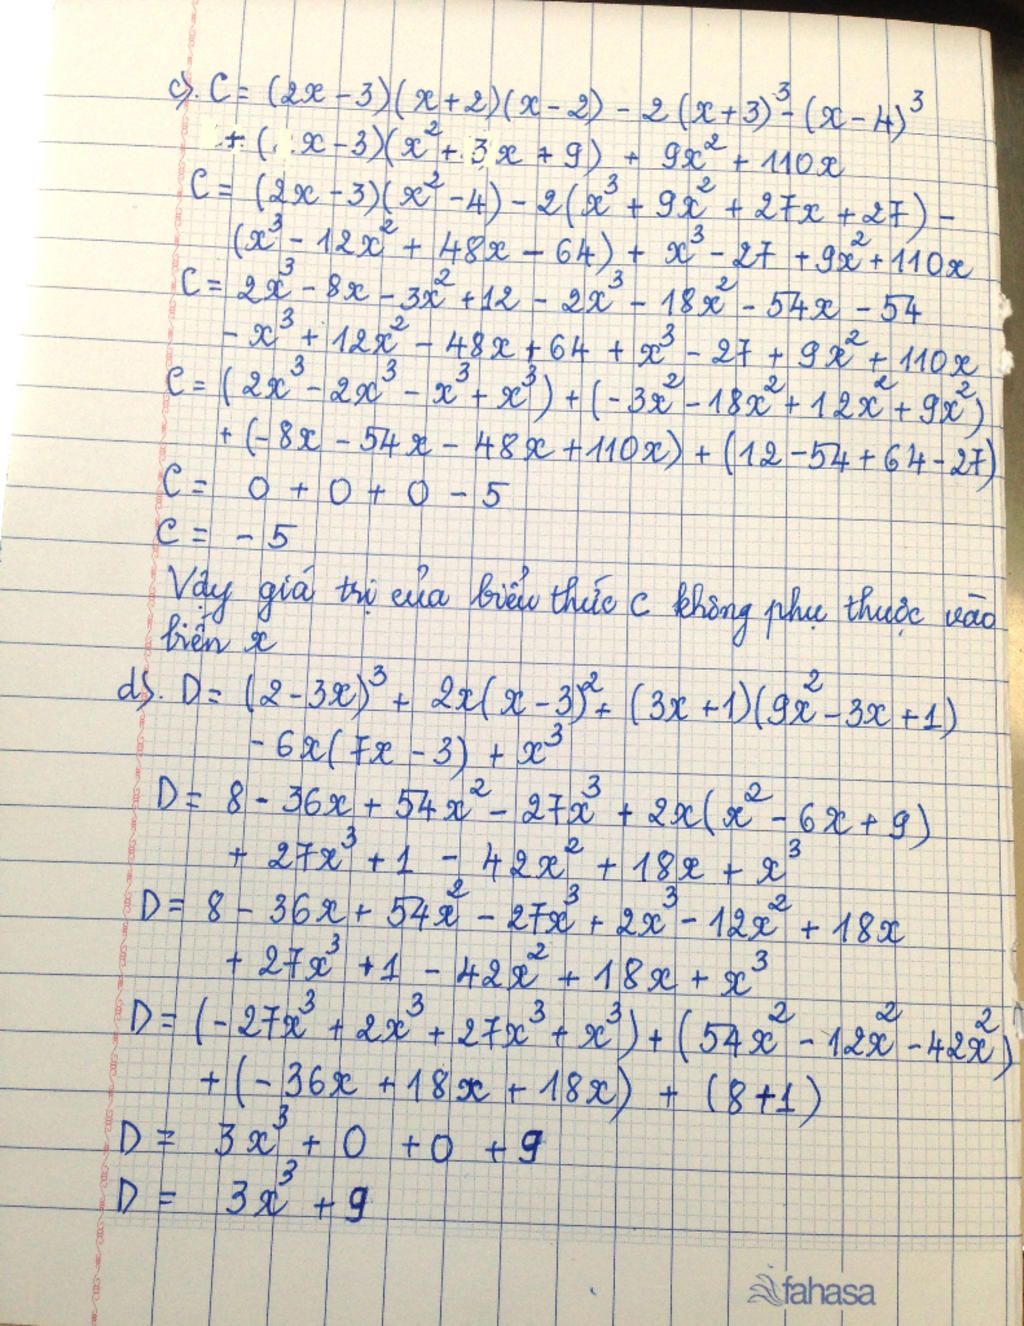 c). C = (2x - 3)(x + 2)(x - 2) - 2(x + 3)³ - (x - 4)³
+ (x - 3)(x² + 3x + 9) + 9x² + 110x
C = (2x - 3)(x² - 4) - 2(x³ + 9x² + 27x + 27) -
(x³ - 12x² + 48x - 64) + x³ - 27 + 9x² + 110x
C = 2x³ - 8x - 3x² + 12 - 2x³ - 18x² - 54x - 54
- x³ + 12x² - 48x + 64 + x³ - 27 + 9x² + 110x
C = (2x³ - 2x³ - x³ + x³) + (-3x² - 18x² + 12x² + 9x²)
+ (-8x - 54x - 48x + 110x) + (12 - 54 + 64 - 27)
C = 0 + 0 + 0 - 5
C = - 5
Vậy giá trị của biểu thức C không phụ thuộc vào
biến x
d). D = (2 - 3x)³ + 2x(x - 3)² + (3x + 1)(9x² - 3x + 1)
- 6x(7x - 3) + x³
D = 8 - 36x + 54x² - 27x³ + 2x(x² - 6x + 9)
+ 27x³ + 1 - 42x² + 18x + x³
D = 8 - 36x + 54x² - 27x³ + 2x³ - 12x² + 18x
+ 27x³ + 1 - 42x² + 18x + x³
D = (- 27x³ + 2x³ + 27x³ + x³) + (54x² - 12x² - 42x²)
+ (- 36x + 18x + 18x) + (8 + 1)
D = 3x³ + 0 + 0 + 9
D = 3x³ + 9
fahasa